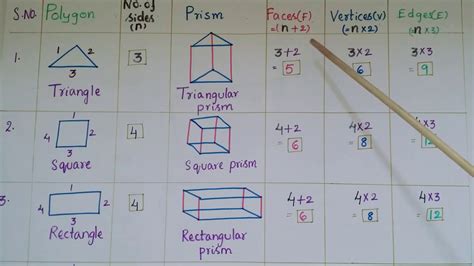 S.No. Polygon No. of sides (n) Prism Faces(F) =(n+2) Vertices(V) (=n×2) Edges(E) (=n×3)
1. 1 2 3 Triangle 3 Triangular prism 3+2 = 5 3×2 6 3×3 = 9
2. 1 4 2 3 Square 4 Square prism 4+2 = 6 4×2 = 8 4×3 = 12
3. 1 4 2 3 Rectangle 4 Rectangular prism 4+2 = 6 4×2 = 8 4×3 = 12